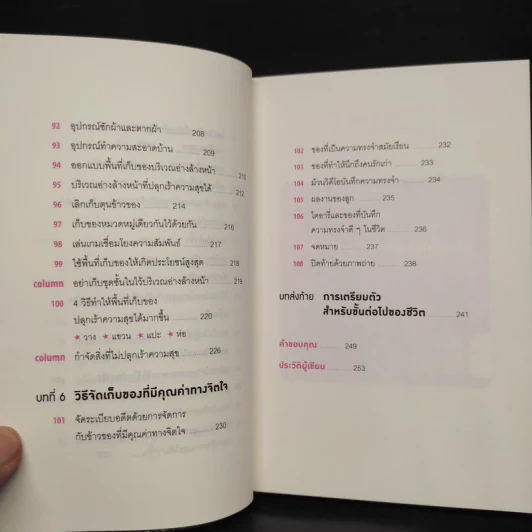 92 อุปกรณ์ซักผ้าและตากผ้า 208
93 อุปกรณ์ทำความสะอาดบ้าน 209
94 ออกแบบพื้นที่เก็บของบริเวณอ่างล้างหน้า 210
95 บริเวณอ่างล้างหน้าที่ปลุกเร้าความสุขได้ 212
96 เลิกเก็บตุนข้าวของ 214
97 เก็บของหมวดหมู่เดียวกันไว้ด้วยกัน 216
98 เล่นเกมเชื่อมโยงความสัมพันธ์ 218
99 ใช้พื้นที่เก็บของให้เกิดประโยชน์สูงสุด 219
column อย่าเก็บชุดชั้นในไว้บริเวณอ่างล้างหน้า
100 4 วิธีทำให้พื้นที่เก็บของ
ปลุกเร้าความสุขได้มากขึ้น
★ วาง ★ แขวน ★ แปะ ★ ห่อ
column กำจัดสิ่งที่ไม่ปลุกเร้าความสุข 226
บทที่ 6 วิธีจัดเก็บของที่มีคุณค่าทางจิตใจ
101 จัดระเบียบอดีตด้วยการจัดการ
กับข้าวของที่มีคุณค่าทางจิตใจ 230
102 ของที่เป็นความทรงจำสมัยเรียน 232
103 ของที่ทำให้นึกถึงคนรักเก่า 233
104 ม้วนวิดีโอบันทึกความทรงจำ 234
105 ผลงานของลูก 235
106 ไดอารี่และของที่บันทึก
ความทรงจำดี ๆ ในชีวิต 236
107 จดหมาย 237
108 ปิดท้ายด้วยภาพถ่าย 238
บทส่งท้าย การเตรียมตัว
สำหรับขั้นต่อไปของชีวิต 241
คำขอบคุณ 249
ประวัติผู้เขียน 253